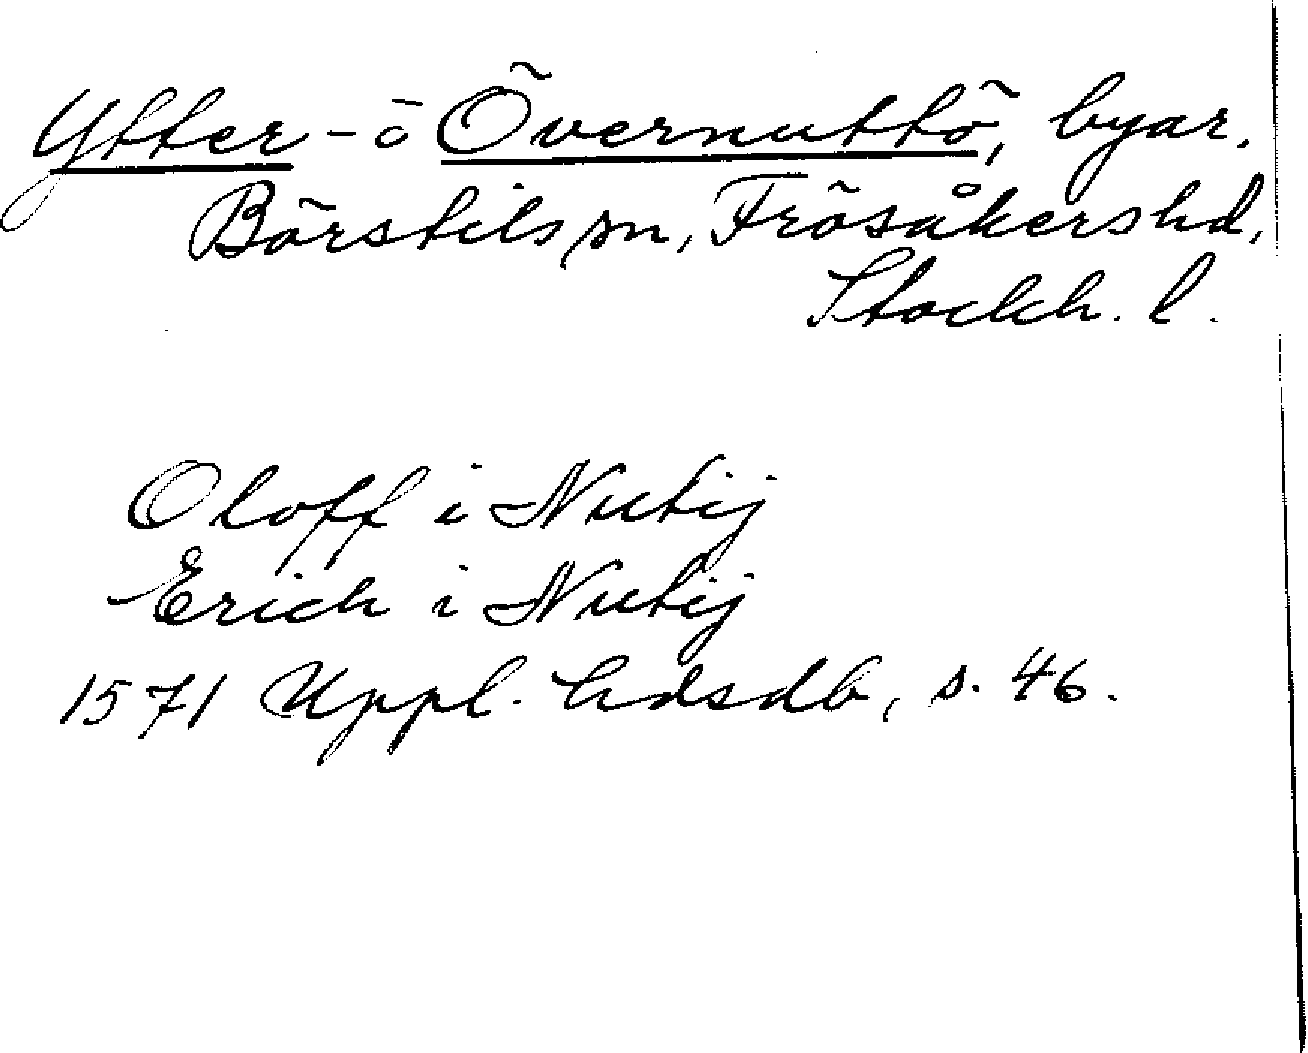 Ytter- o Övernuttö, byar.
Börstils sn, Frösåkers hd,
Stockh. l.
Oloff i Nutij
Erich i Nutij
1571 Uppl. hdsdb, s. 46.